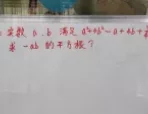 实数 a、b 满足 a²+b²-a+4b+
求 -ab 的平方根？